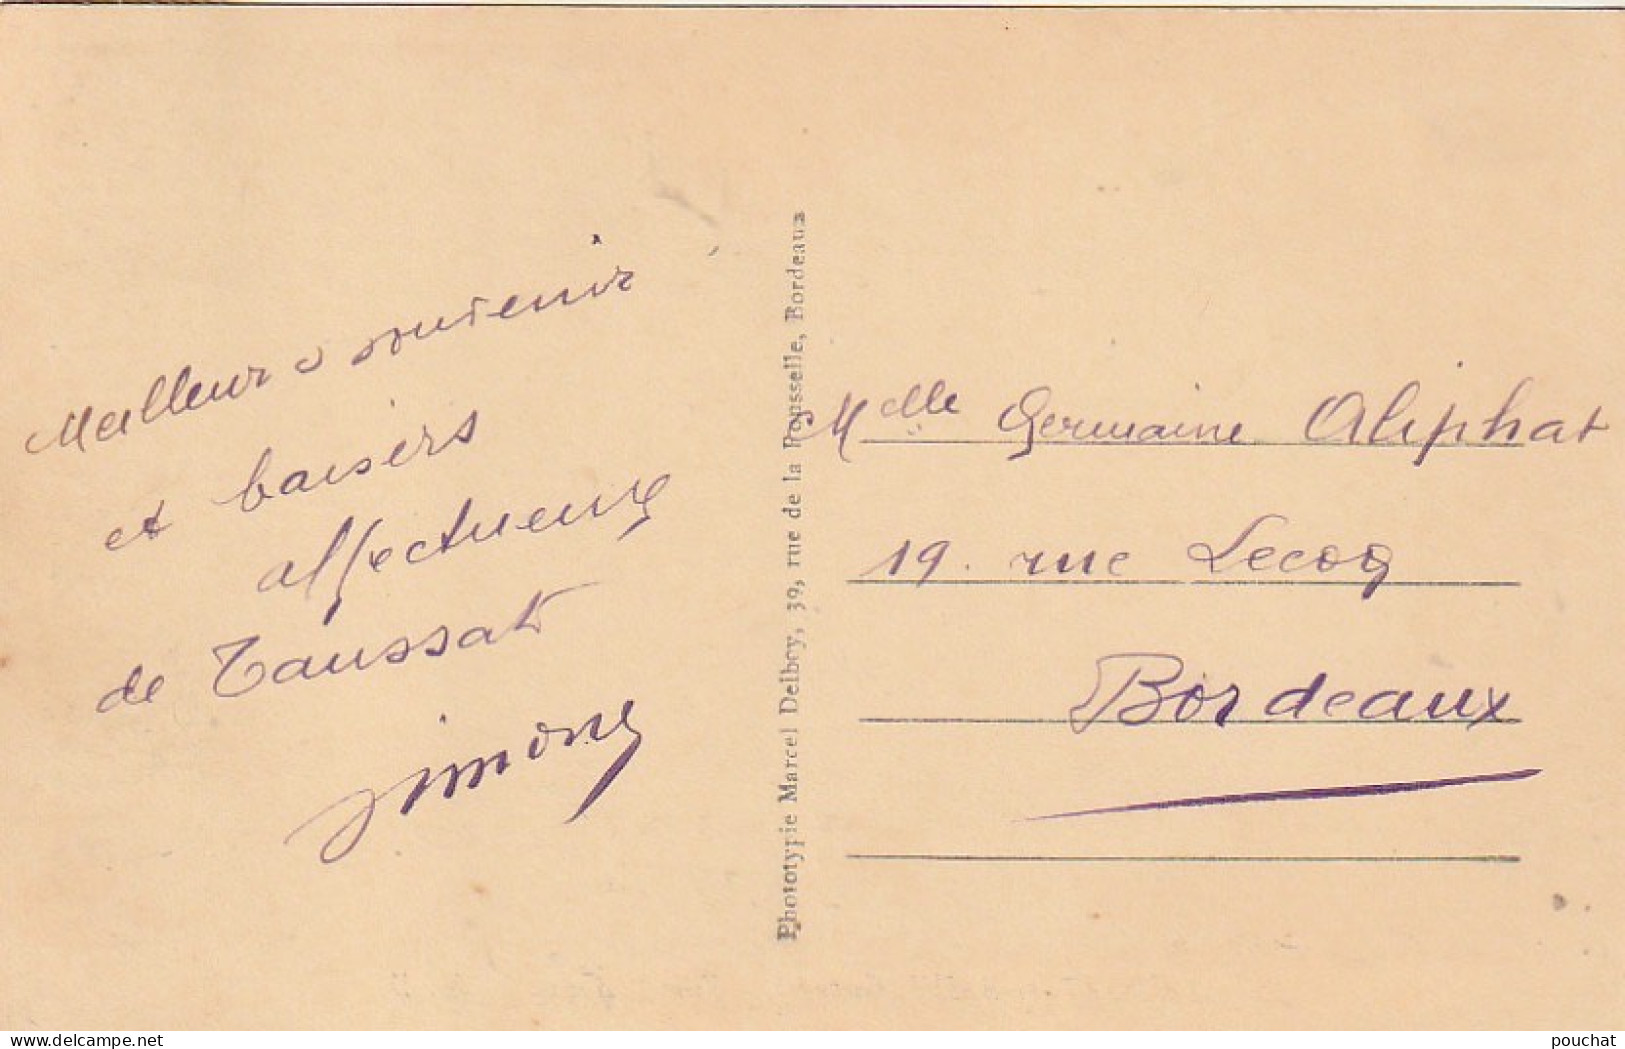 Meilleurs souvenir
et baisers
affectueux
de Taussat
Simone
Phototypie Marcel Delboy, 39, rue de la Rousselle, Bordeaux
Melle Germaine Aliphat
19. rue Lecoq
Bordeaux
www.delcampe.net
pouchat